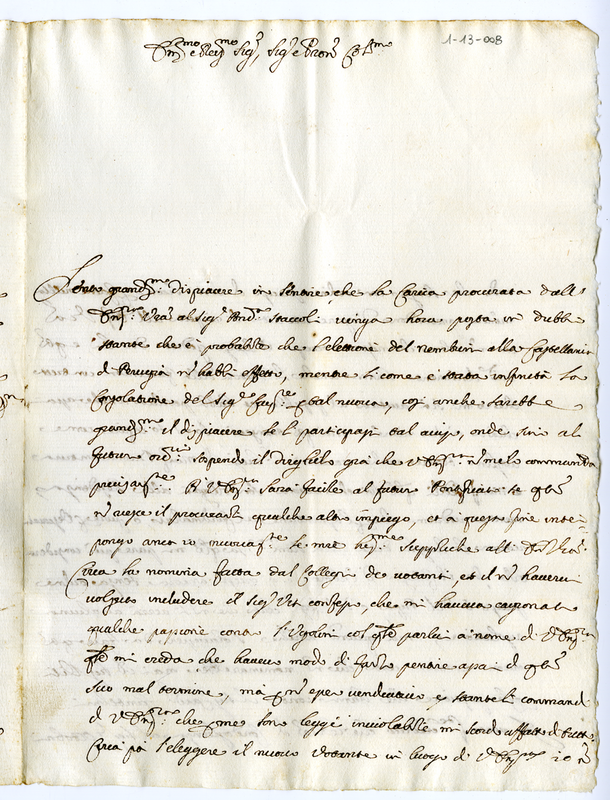 1-13-008
Em.mo e Rev.mo Sig.r, Sig.r e Pron. Col.mo
Sento grand.mo dispiacere in sentire che la Carica procurata dall'
Em.za V.ra al Sig.r Staccoli venga hora posta in dubbio
stante che è probabile che l'elettione del Nembrini alla Castellania
di Perugia n habbi effetto, mentre si come è stata infinita la
Consolatione del Sig.r tal nuova, così anche sarebbe
grand.mo il dispiacere se li participassi tal aviso, onde sino al
futuro ord.rio sospendo il dirglielo già che V. Em.za n me lo commanda
precisam.te. A V. Em.za sarà facile al futuro Pontificato se
n avesse il procurarli qualche altro impiego, et a questo fine inter
pongo anco io nuovam.te le mie suppliche all' Em.za V.ra.
Circa la nomina fatta dal Collegio de votanti, et il n havervi
voluto includere il Sig.r che mi haveva cagionato
qualche passione contro l'Ugolini col q.le parlai a nome di V. Em.za
q.le mi creda che havevo modo di farlo pentire assai di
suo mal termine, ma n esser vendicativo e stante li commandi
di V. Em.za che me son leggi inviolabili mi scordo affatto di tutto.
Circa poi l'eleggere il nuovo Votante in luogo di V. Em.za io n